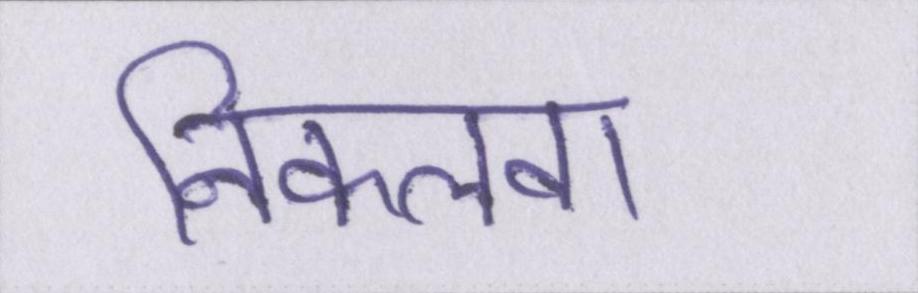 निकलवा